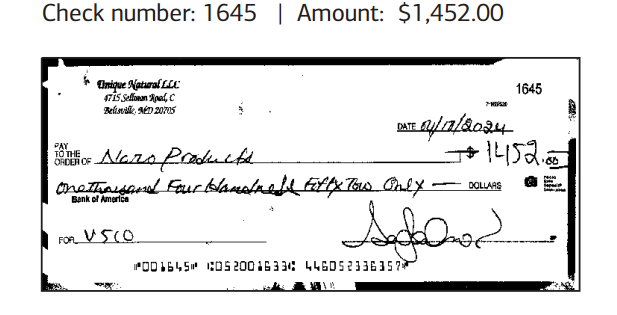 Check number: 1645 | Amount: $1,452.00
Unique Natural LLC
4715 Sellman Road, C
Beltsville, MD 20705
1645
DATE 04/17/2024
PAY
TO THE
ORDER OF Naro Products $ 1452.00
One Thousand Four Hundred Fifty Two Only — DOLLARS
Bank of America
FOR V5C0
⑈001645⑈ ⑆052001633⑆ 446052336357⑈